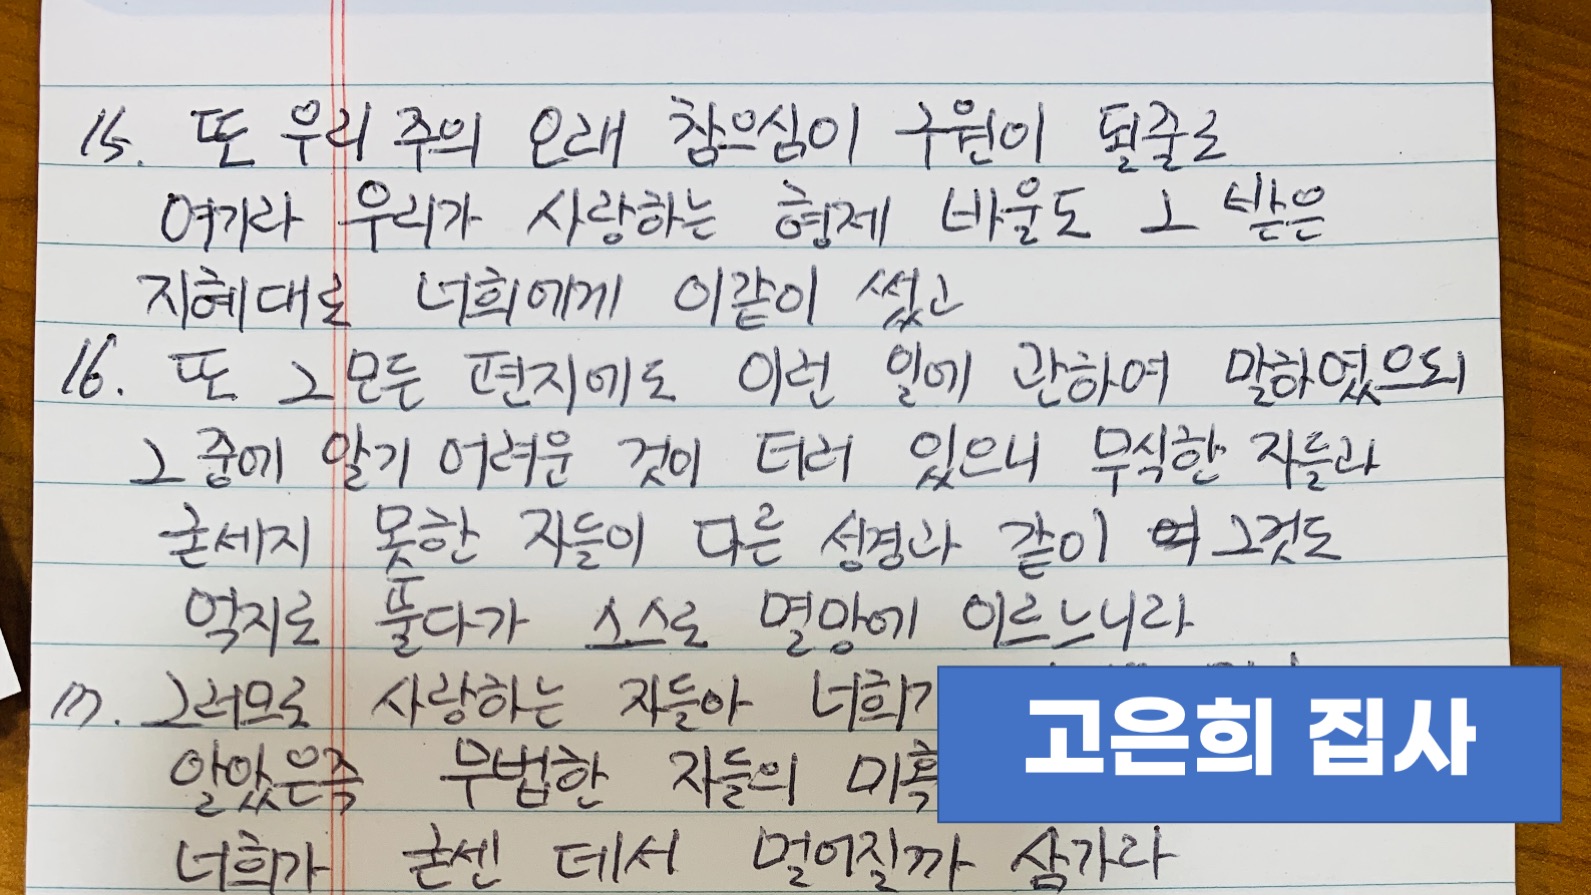 15. 또 우리 주의 오래 참으심이 구원이 될줄로
여기라 우리가 사랑하는 형제 바울도 그 받은
지혜대로 너희에게 이같이 썼고
16. 또 그 모든 편지에도 이런 일에 관하여 말하였으되
그 중에 알기 어려운 것이 더러 있으니 무식한 자들과
굳세지 못한 자들이 다른 성경과 같이 그것도
억지로 풀다가 스스로 멸망에 이르느니라
17. 그러므로 사랑하는 자들아 너희가
알았은즉 무법한 자들의 미혹
너희가 굳센 데서 떨어질까 삼가라
고은희 집사